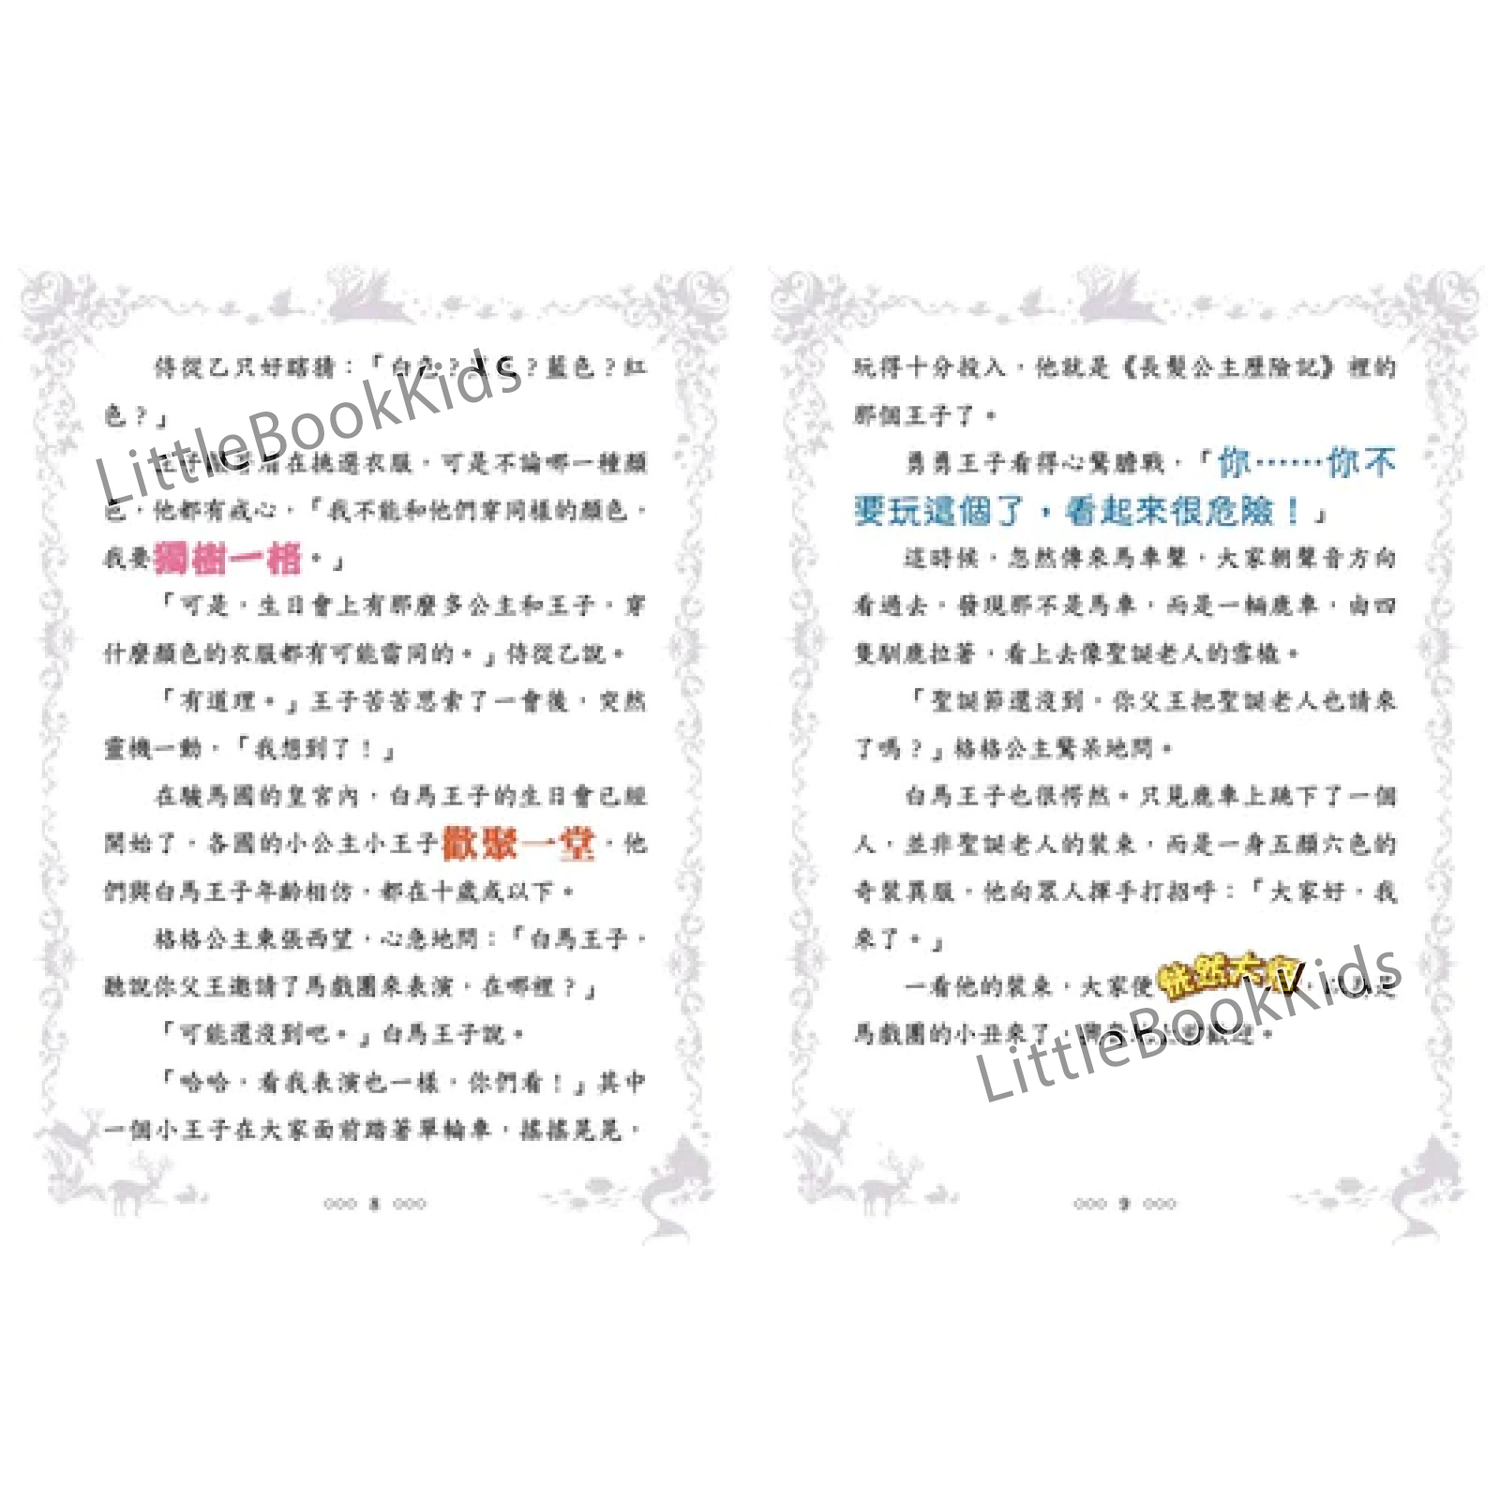 侍從乙只好瞎猜：「白色？ ？藍色？紅
色？」
王子 在挑選衣服，可是不論哪一種顏
色，他都有戒心，「我不能和他們穿同樣的顏色，
我要獨樹一格。」
「可是，生日會上有那麼多公主和王子，穿
什麼顏色的衣服都有可能雷同的。」侍從乙說。
「有道理。」王子苦苦思索了一會後，突然
靈機一動，「我想到了！」
在駿馬國的皇宮內，白馬王子的生日會已經
開始了，各國的小公主小王子歡聚一堂，他
們與白馬王子年齡相仿，都在十歲或以下。
格格公主東張西望，心急地問：「白馬王子，
聽說你父王邀請了馬戲團來表演，在哪裡？」
「可能還沒到吧。」白馬王子說。
「哈哈，看我表演也一樣，你們看！」其中
一個小王子在大家面前踏著單輪車，搖搖晃晃，
8
玩得十分投入，他就是《長髮公主歷險記》裡的
那個王子了。
勇勇王子看得心驚膽戰，「你……你不
要玩這個了，看起來很危險！」
這時候，忽然傳來馬車聲，大家朝聲音方向
看過去，發現那不是馬車，而是一輛鹿車，由四
隻馴鹿拉著，看上去像聖誕老人的雪橇。
「聖誕節還沒到，你父王把聖誕老人也請來
了嗎？」格格公主驚呆地問。
白馬王子也很愕然。只見鹿車上跳下了一個
人，並非聖誕老人的裝束，而是一身五顏六色的
奇裝異服，他向眾人揮手打招呼：「大家好，我
來了。」
一看他的裝束，大家便恍然大悟， 是
馬戲團的小丑來了， 歡迎。
9
LittleBookKids
LittleBookKids